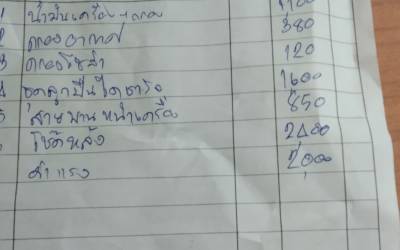 1 น้ำมันเครื่อง+กรอง 1100
2 กรองอากาศ 380
3 กรองโซล่า 120
4 ชุดลูกปืนไดชาร์จ 1,600
5 สายพานหน้าเครื่อง 850
โช๊คหลัง 2,400
ค่าแรง 2,000